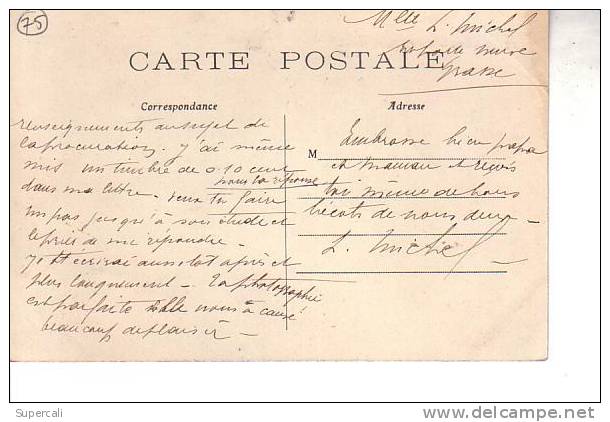 75
Mlle L. Michel
porte neuve
Grasse
CARTE POSTALE
Correspondance
Adresse
renseignements au sujet de
la procuration. j'ai même
mis un timbre de 0.10 cent
pour la réponse
dans ma lettre. veux tu faire
un pas jusqu'à son étude et
le prier de me répondre _
je t'écrirai aussitot après et
plus longuement _ ta photographie
est parfaite elle nous à causé
beaucoup de plaisir _
M
Embrasse bien papa
et maman et reçois
toi même de bons
bécots de nous deux _
L. Michel
Supercali
www.delcampe.net